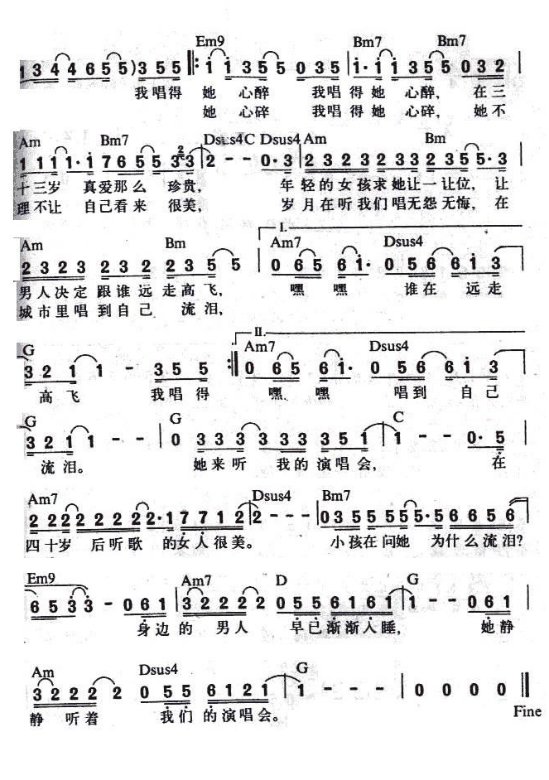 Em9 Bm7 Bm7
1 3 4 4 6 5 5) 3 5 5 ‖: i i 3 5 5 0 3 5 | i· i i 3 5 5 0 3 2 |
我唱得 她 心醉 我唱得她 心醉, 在三
她 心碎 我唱得她 心碎, 她不
Am Bm7 Dsus4C Dsus4 Am Bm
1 1 1 1 1· i 7 6 5 5 3 3 2 | 2 - - 0·3 | 2 3 2 3 2 3 3 2 3 5 5·3 |
十三岁 真爱那么 珍贵, 年轻的女孩求她让一让位, 让
理不让 自己看来 很美, 岁月在听我们唱无怨无悔, 在
I.
Am Bm Am7 Dsus4
2 3 2 3 2 3 2 2 3 5 5 | 0 6 5 6 i· 0 5 6 6 i 3 |
男人决定 跟谁远走高飞, 嘿 嘿 谁在 远走
城市里唱 到自己 流泪,
II.
G Am7 Dsus4
3 2 1 1 - 3 5 5 :‖ 0 6 5 6 i· 0 5 6 6 i 3 |
高飞 我唱得 嘿 嘿 唱到 自己
G G C
3 2 1 1 - - | 0 3 3 3 3 3 3 3 3 5 1 | 1 - - 0·5 |
流泪。 她来听 我的演唱会, 在
Am7 Dsus4 Bm7
2 2 2 2 2 2 2 2·1 7 7 1 2 | 2 - - - | 0 3 5 5 5 5 5·5 6 6 5 6 |
四十岁 后听歌 的女人很美。 小孩在问她 为什么流泪?
Em9 Am7 D G
6 5 3 3 - 0 6 1 | 3 2 2 2 2 0 5 5 6 1 6 1 | 1 - - 0 6 1 |
身边的 男人 早已渐渐入睡, 她静
Am Dsus4 G
3 2 2 2 2 0 5 5 6 1 2 1 | 1 - - - | 0 0 0 0 ‖
静 听着 我们 的演唱会。
Fine